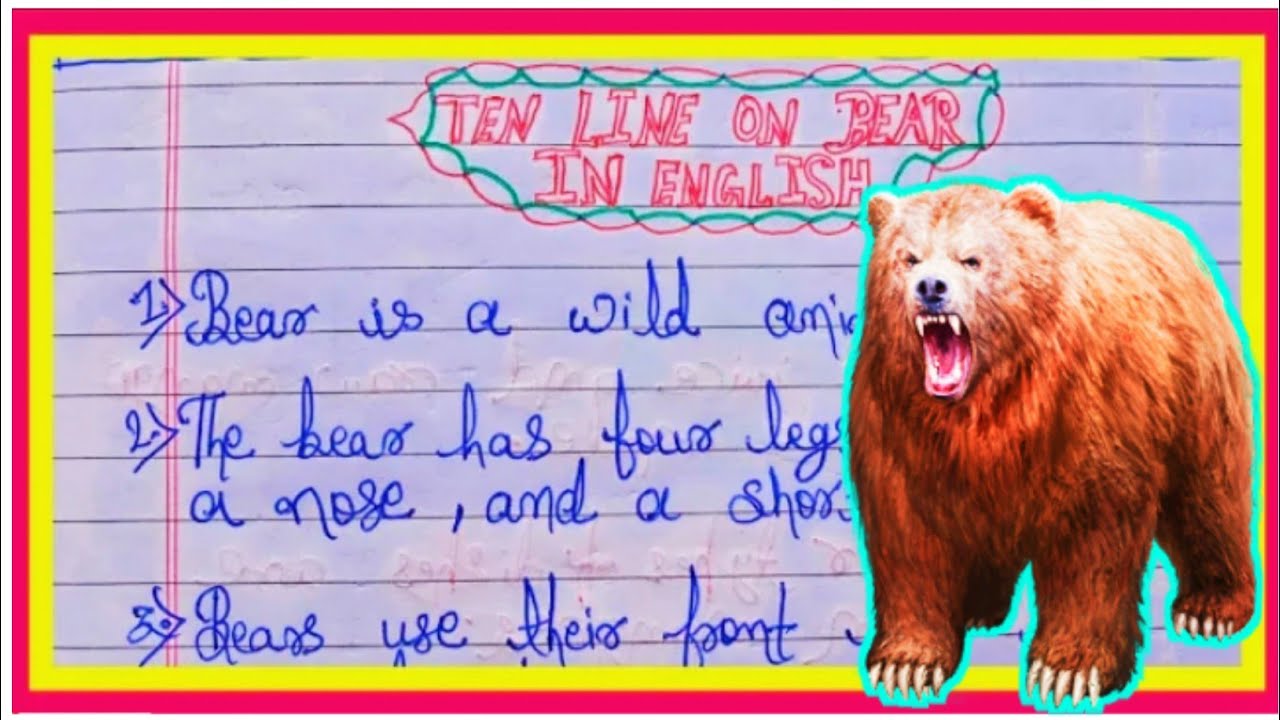 TEN LINE ON BEAR
IN ENGLISH
1) Bear is a wild
2) The bear has four legs
a nose, and a
3) Bears use their front